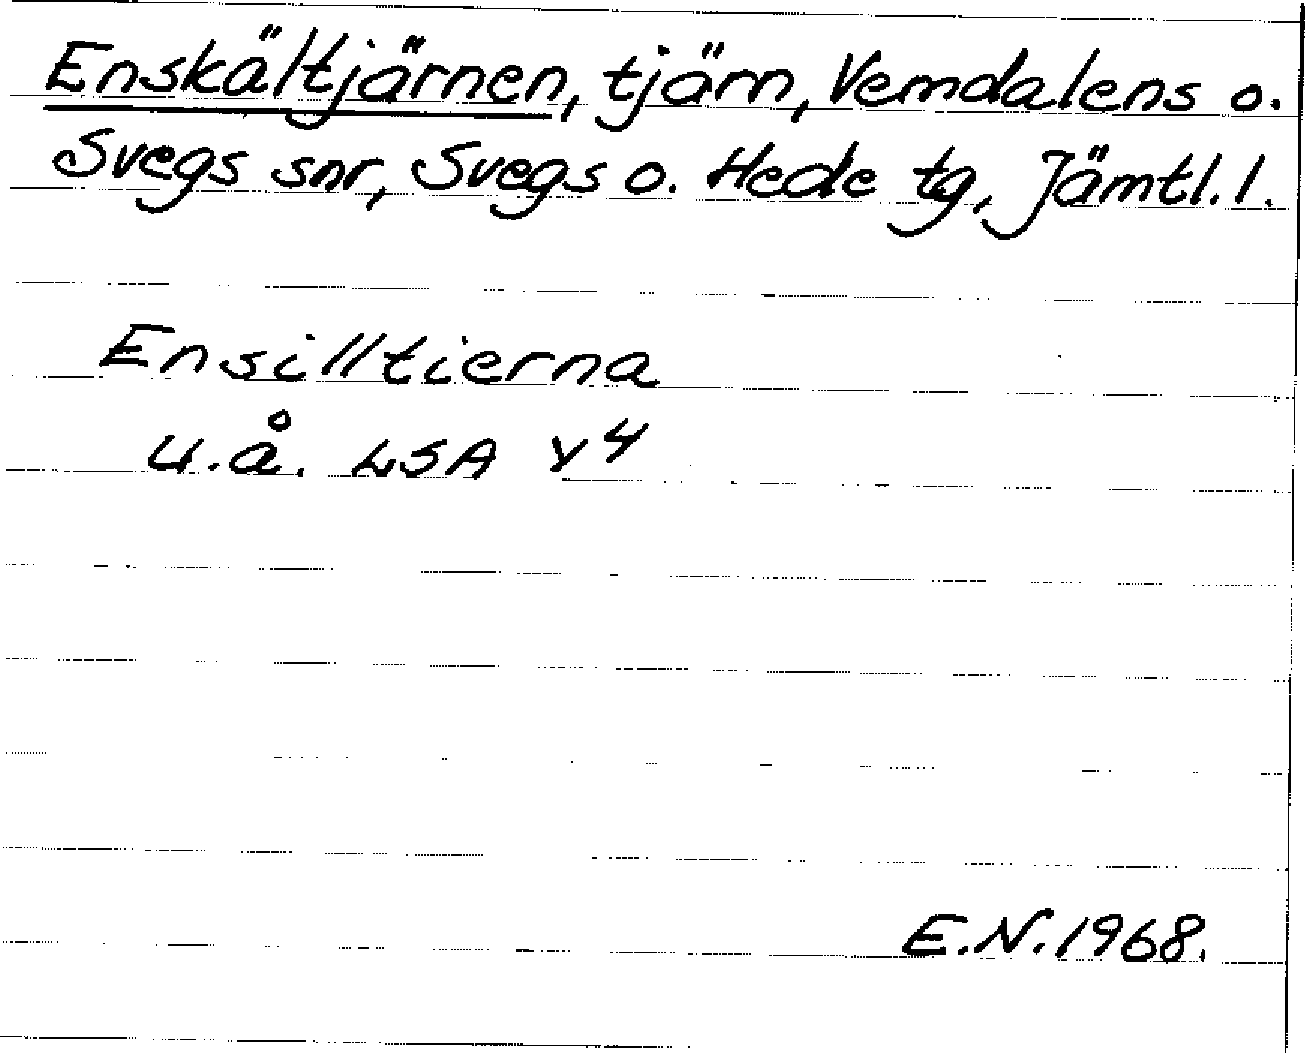 Enskältjärnen, tjärn, Vemdalens o.
Svegs snr, Svegs o. Hede tg, Jämtl. l.
Ensilltierna
u.å. LSA Y4
E.N. 1968.